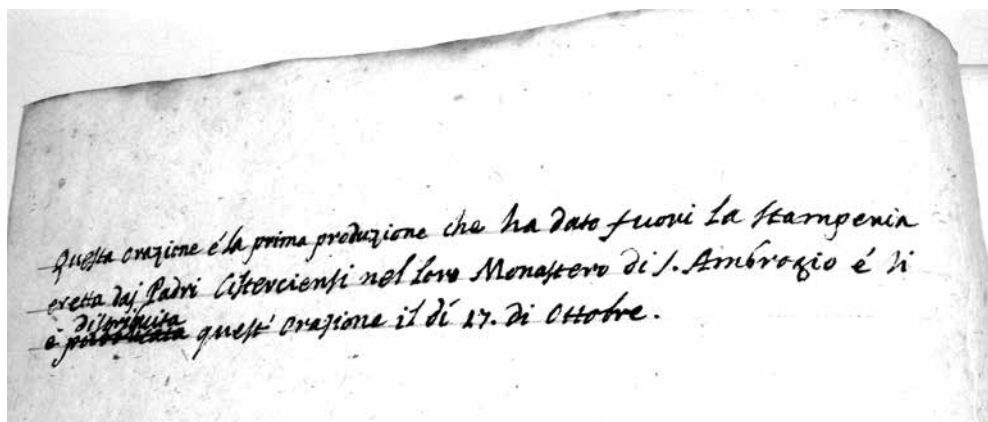 Questa orazione é la prima produzione che ha dato fuori la Stamperia
eretta dai Padri Cisterciensi nel loro Monastero di S. Ambrogio é si
distribuita
è pubblicata quest' Orazione il dí 17. di Ottobre.